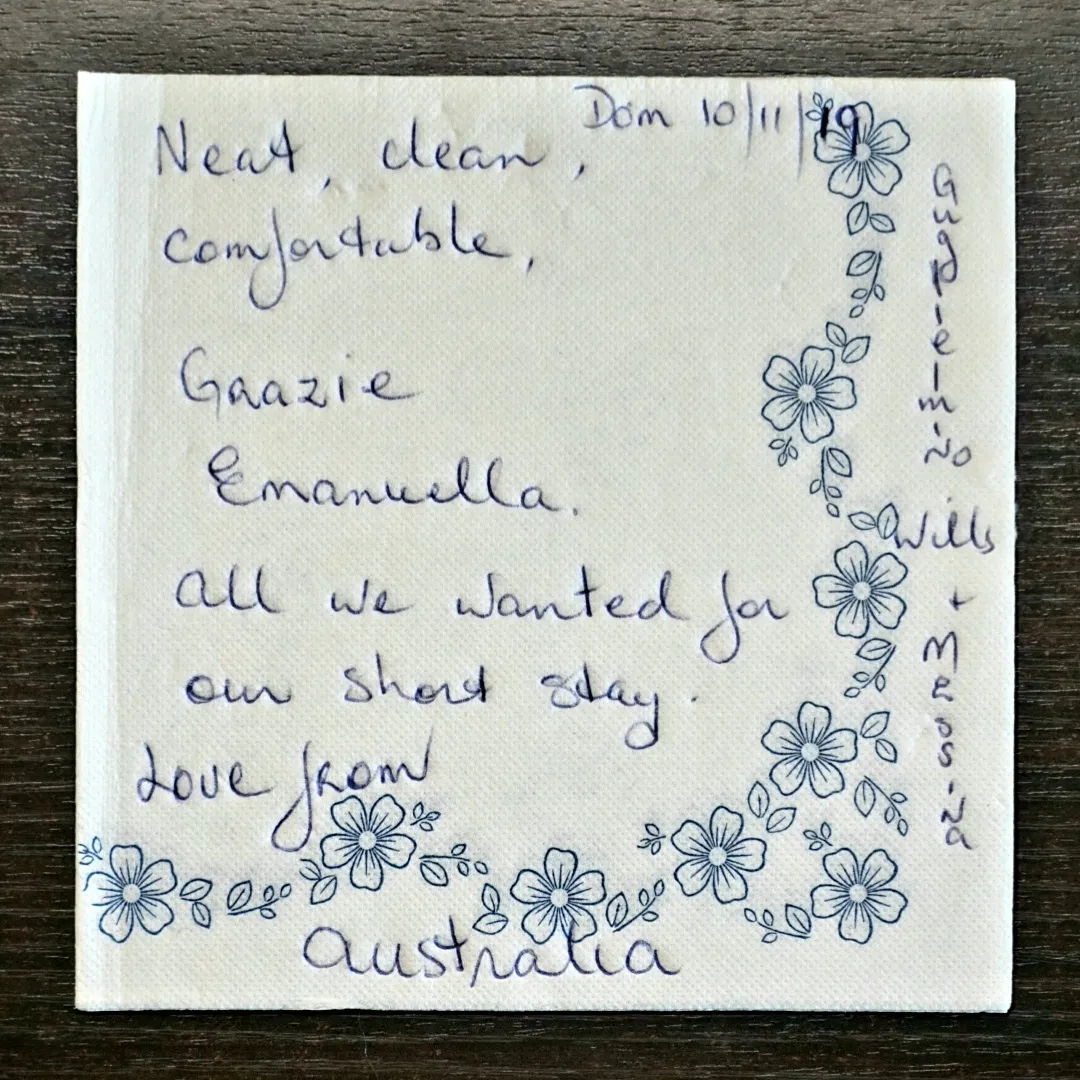 Dom 10/11/19
Neat, clean,
comfortable,
Grazie
Emanuella.
All we wanted for
our short stay.
Love from
Australia
Guglielmino
Wills
+
Messina